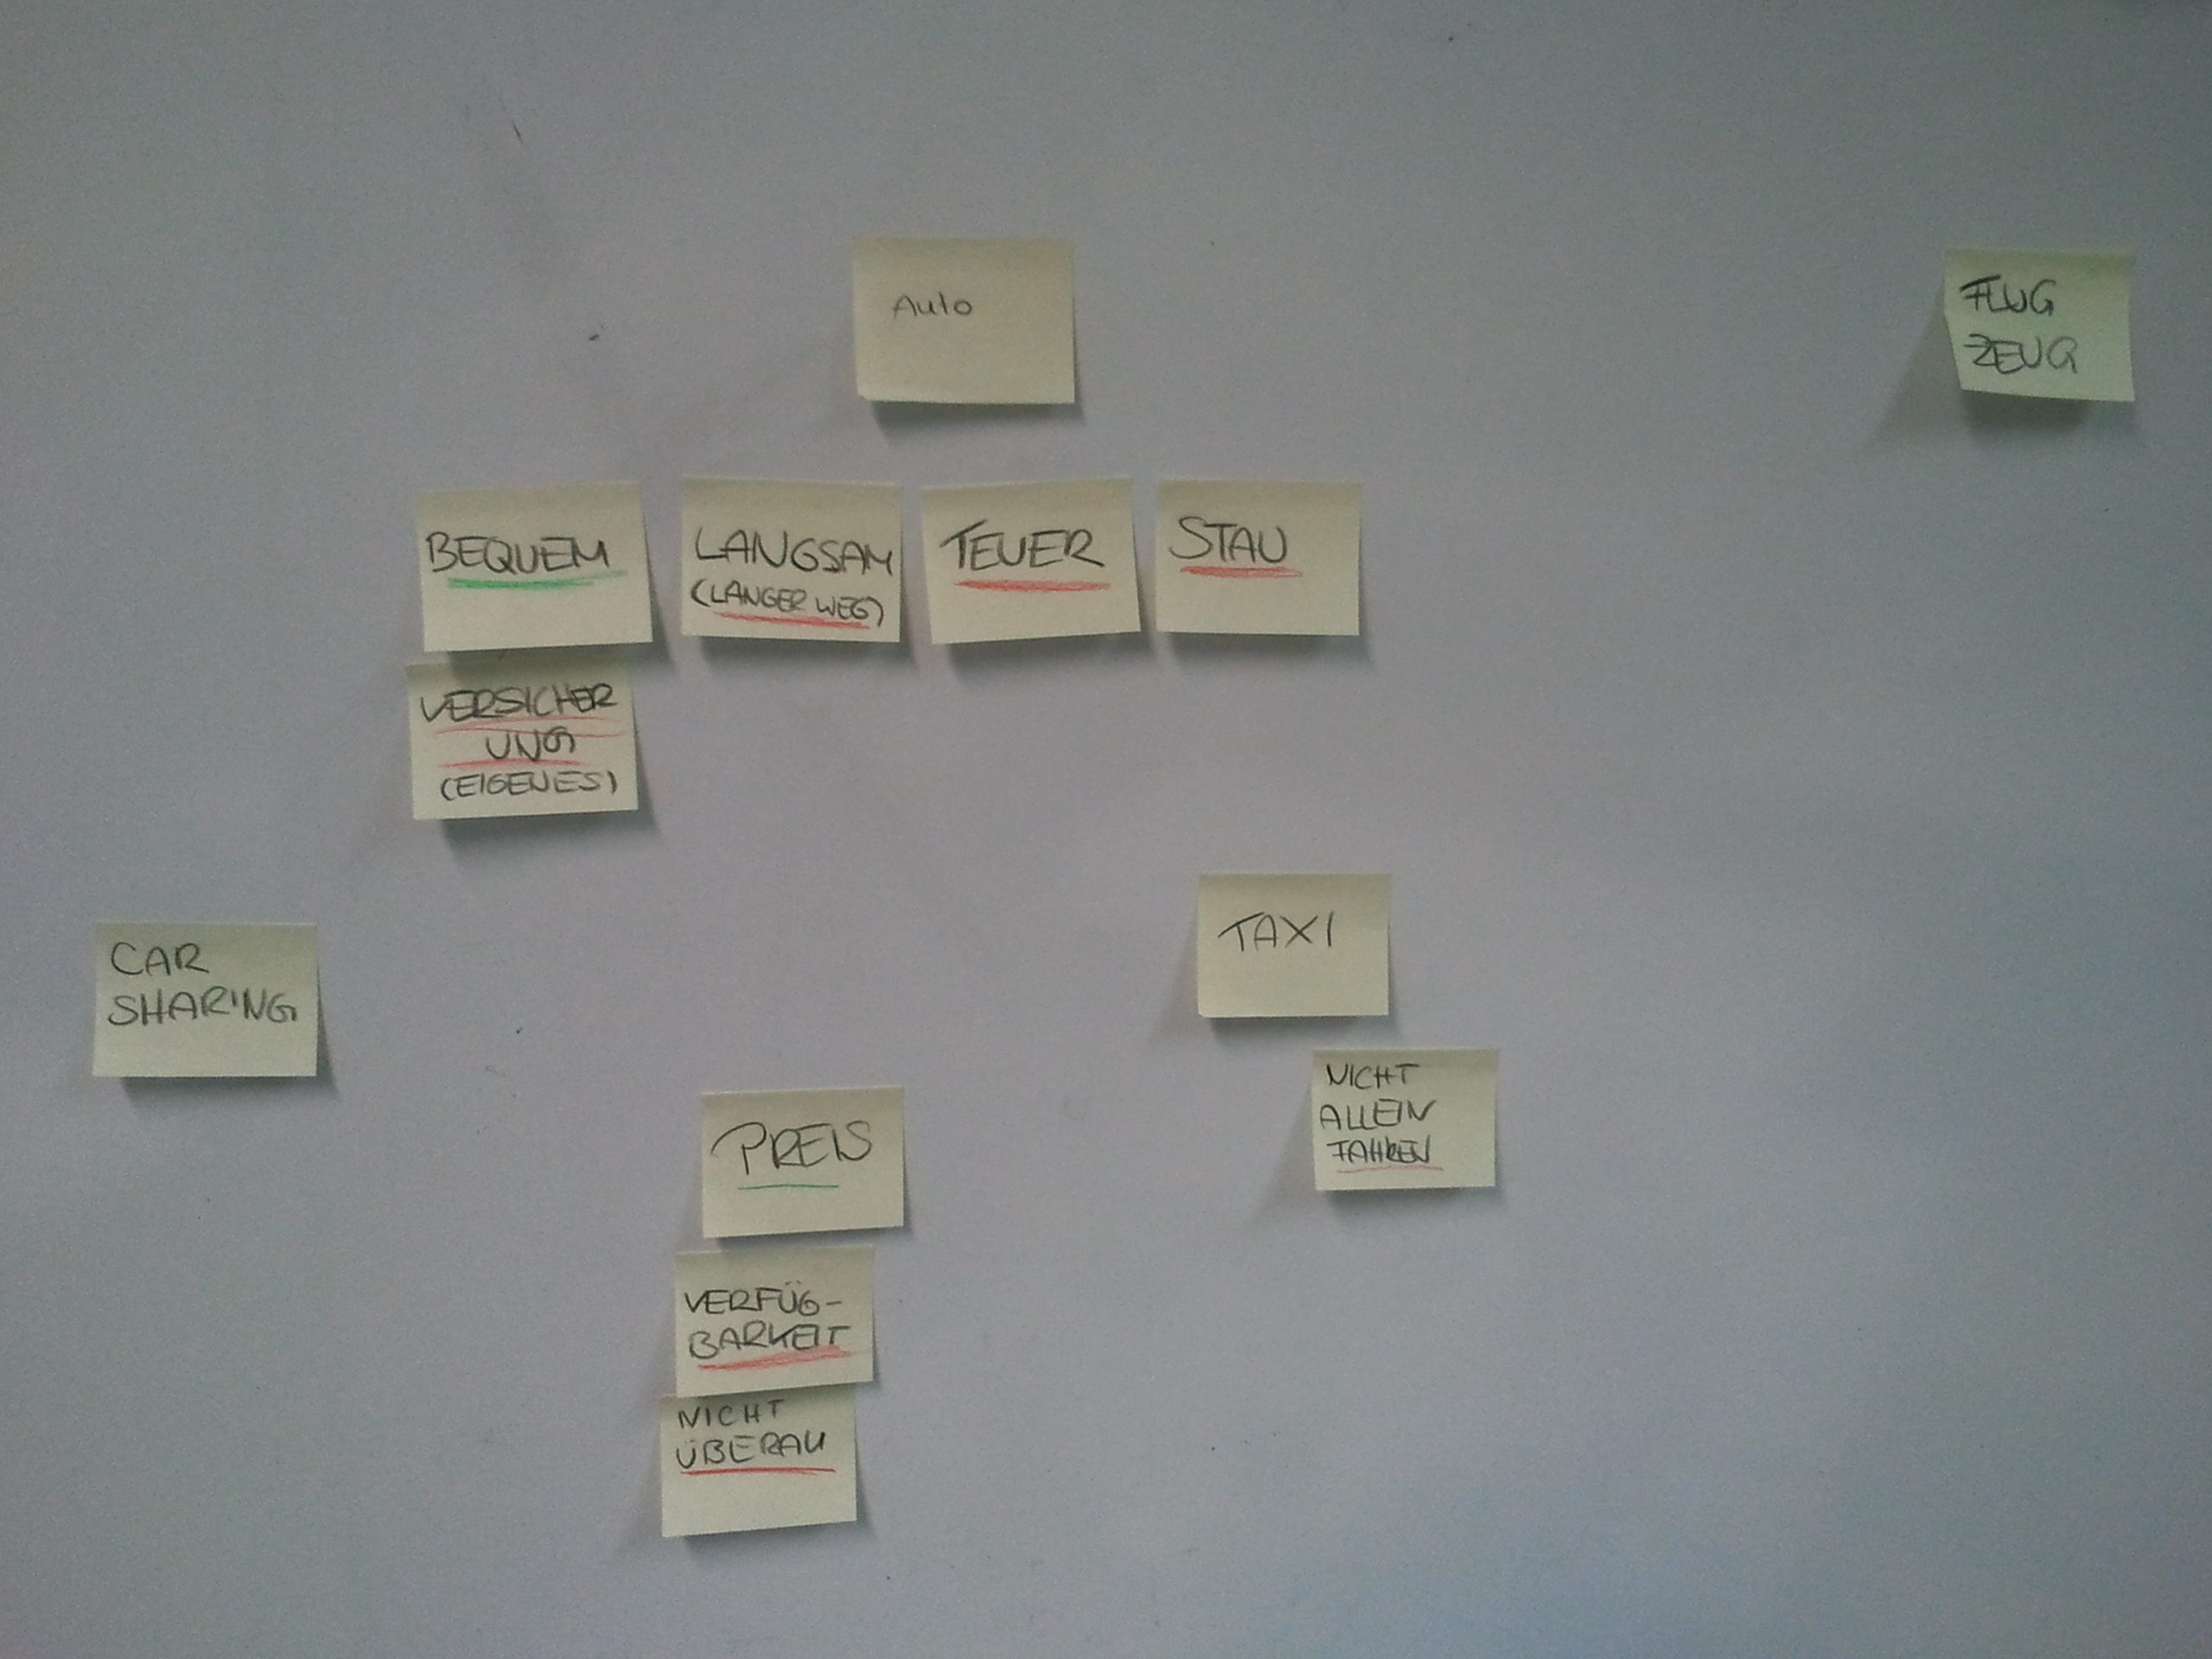 Auto
FLUG
ZEUG
BEQUEM
LANGSAM
(LANGER WEG)
TEUER
STAU
VERSICHER
UNG
(EIGENES)
CAR
SHARING
TAXI
NICHT
ALLEIN
FAHREN
PREIS
VERFÜG-
BARKEIT
NICHT
ÜBERALL